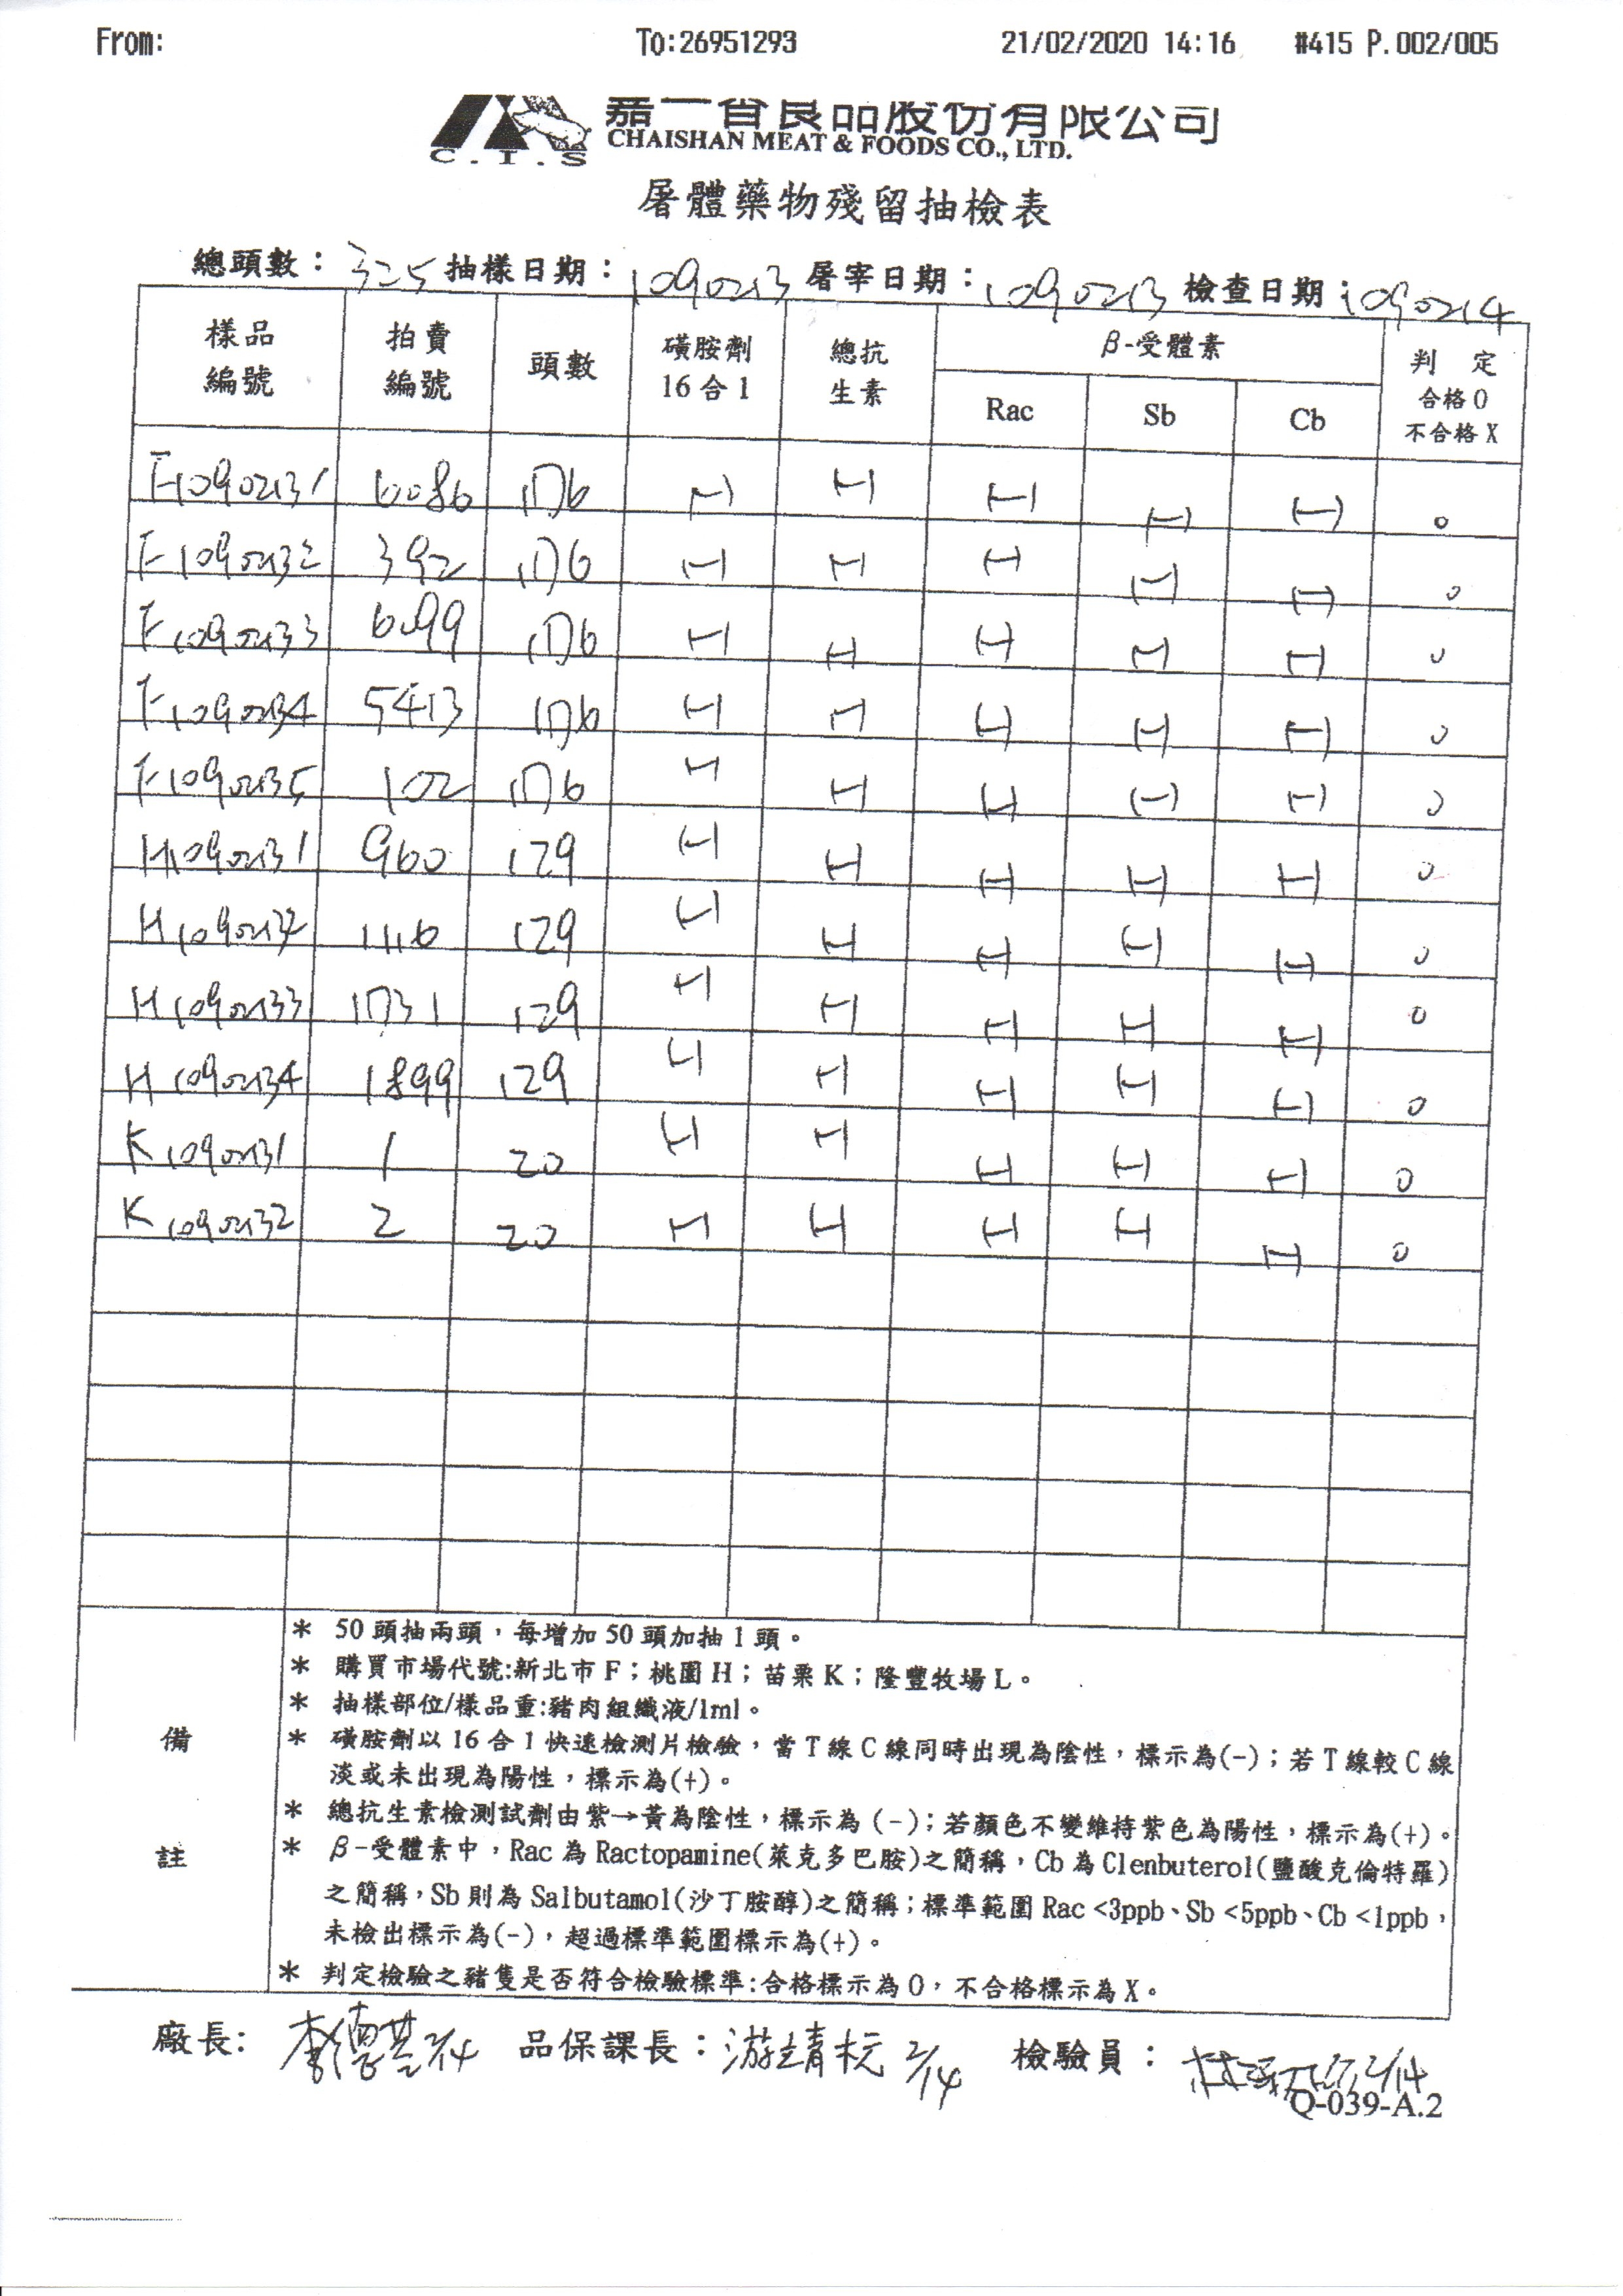 From: To:26951293 21/02/2020 14:16 #415 P.002/005
嘉一香食品股份有限公司
CHAISHAN MEAT & FOODS CO., LTD.
C.I.S
屠體藥物殘留抽檢表
總頭數：325 抽樣日期：1090213 屠宰日期：1090213 檢查日期：1090214
樣品編號 拍賣編號 頭數 磺胺劑16合1 總抗生素 β-受體素 判定 合格O 不合格X
Rac Sb Cb
F1090231 6086 176 (-) (-) (-) (-) (-) O
F1090232 392 176 (-) (-) (-) (-) (-) O
F1090233 6099 176 (-) (-) (-) (-) (-) O
F1090234 5413 176 (-) (-) (-) (-) (-) O
F1090235 102 176 (-) (-) (-) (-) (-) O
H1090231 960 129 (-) (-) (-) (-) (-) O
H1090232 1116 129 (-) (-) (-) (-) (-) O
H1090233 1731 129 (-) (-) (-) (-) (-) O
H1090234 1899 129 (-) (-) (-) (-) (-) O
K1090231 1 20 (-) (-) (-) (-) (-) O
K1090232 2 20 (-) (-) (-) (-) (-) O
備註
* 50頭抽兩頭，每增加50頭加抽1頭。
* 購買市場代號:新北市F；桃園H；苗栗K；隆豐牧場L。
* 抽樣部位/樣品重:豬肉組織液/1ml。
* 磺胺劑以16合1快速檢測片檢驗，當T線C線同時出現為陰性，標示為(-)；若T線較C線
淡或未出現為陽性，標示為(+)。
* 總抗生素檢測試劑由紫→黃為陰性，標示為(-)；若顏色不變維持紫色為陽性，標示為(+)。
* β-受體素中，Rac為Ractopamine(萊克多巴胺)之簡稱，Cb為Clenbuterol(鹽酸克倫特羅)
之簡稱，Sb則為Salbutamol(沙丁胺醇)之簡稱；標準範圍Rac<3ppb、Sb<5ppb、Cb<1ppb，
未檢出標示為(-)，超過標準範圍標示為(+)。
* 判定檢驗之豬隻是否符合檢驗標準:合格標示為O，不合格標示為X。
廠長: 2/14 品保課長：2/14 檢驗員：2/14
Q-039-A.2